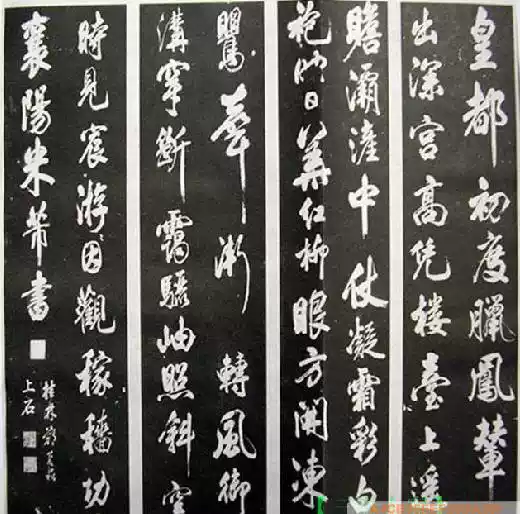 皇都初度臘鳳輦
出深宮高凭樓臺上遥
瞻灞滻中仗凝霜彩白
袍映日華紅柳眼方開凍
鸎聲漸轉風御
溝穿斷靄驪岫照斜空
時見宸游因觀稼穡功
襄陽米芾書
桂林劉
上石